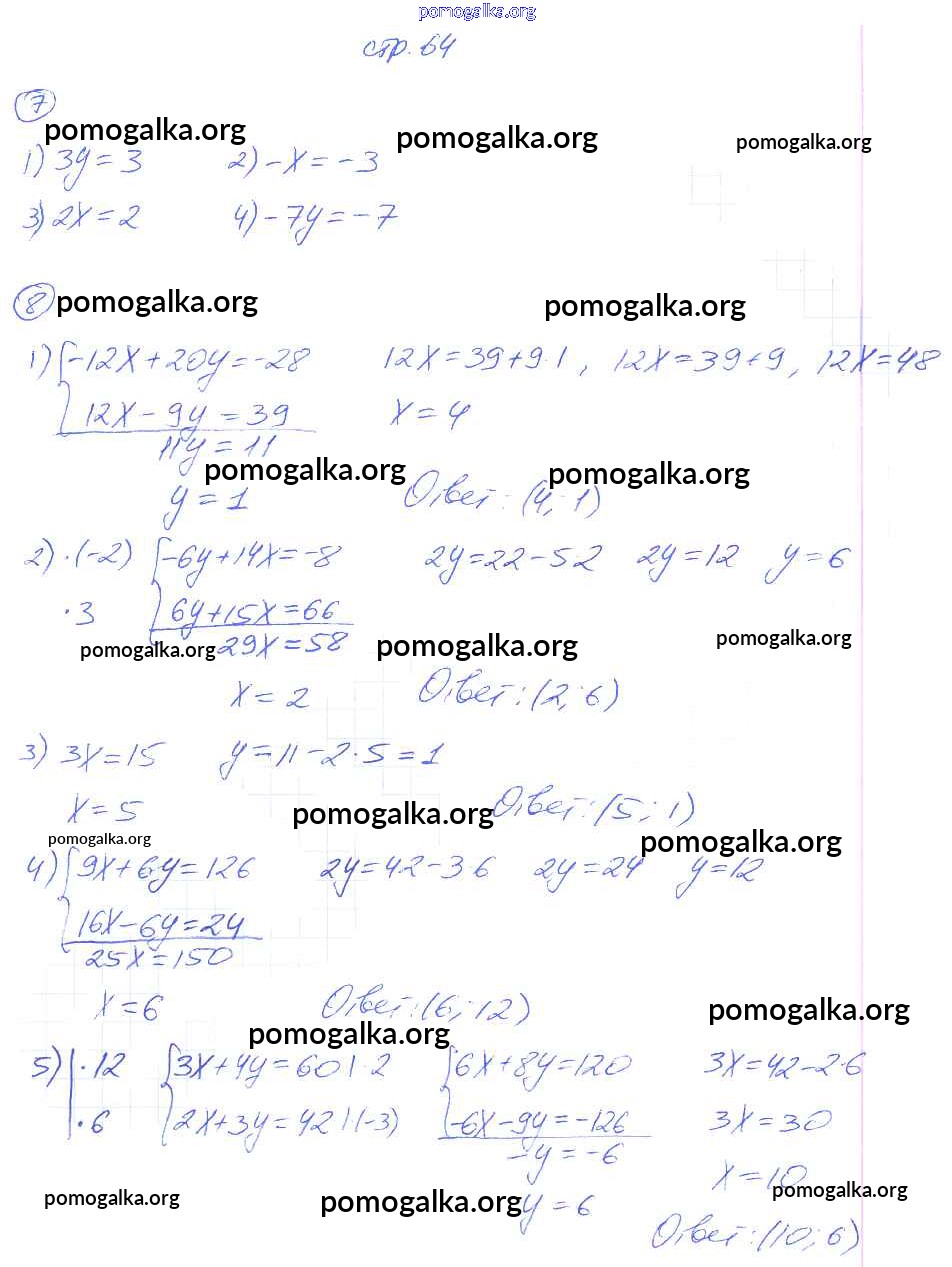 pomogalka.org
стр. 64
7
pomogalka.org pomogalka.org pomogalka.org
1) 3y = 3 2) -x = -3
3) 2x = 2 4) -7y = -7
8 pomogalka.org pomogalka.org
1) { -12x + 20y = -28 12x = 39 + 9·1 , 12x = 39 + 9 , 12x = 48
12x - 9y = 39 x = 4
11y = 11
pomogalka.org pomogalka.org
y = 1 Ответ: (4; 1)
2) ·(-2) { -6y + 14x = -8 2y = 22 - 5·2 2y = 12 y = 6
·3 6y + 15x = 66
pomogalka.org 29x = 58 pomogalka.org pomogalka.org
x = 2 Ответ: (2; 6)
3) 3x = 15 y = 11 - 2·5 = 1
x = 5 pomogalka.org Ответ: (5; 1)
pomogalka.org pomogalka.org
4) { 9x + 6y = 126 2y = 42 - 3·6 2y = 24 y = 12
16x - 6y = 24
25x = 150
x = 6 Ответ: (6; 12) pomogalka.org
pomogalka.org
5) | ·12 { 3x + 4y = 60 | ·2 { 6x + 8y = 120 3x = 42 - 2·6
·6 2x + 3y = 42 | (-3) -6x - 9y = -126 3x = 30
-y = -6
x = 10
pomogalka.org pomogalka.org y = 6 pomogalka.org
Ответ: (10; 6)